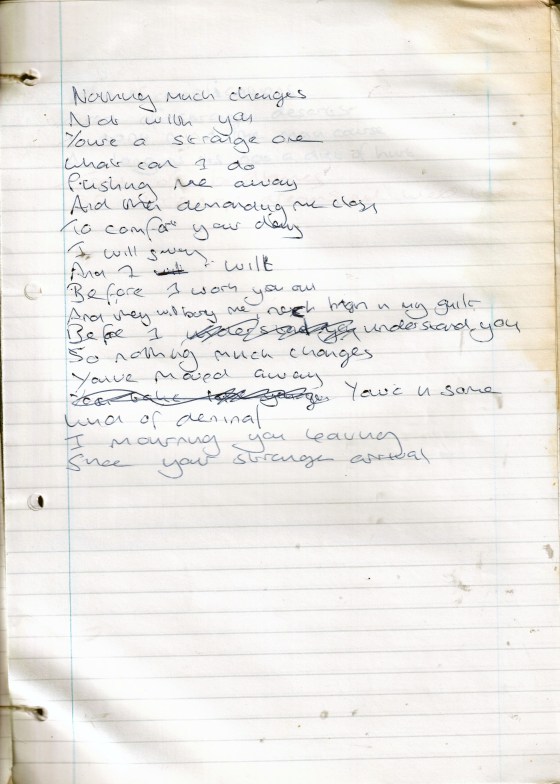 Nothing much changes
Not with you
You're a strange one
What can I do
Pushing me away
And then demanding me close
To comfort your
I will
And I wilt
Before I work you out
And they will bury me neck high in my guilt
Before I understand you
So nothing much changes
You've moved away
You're in some
kind of denial
I mourning you leaving
Since your strange arrival